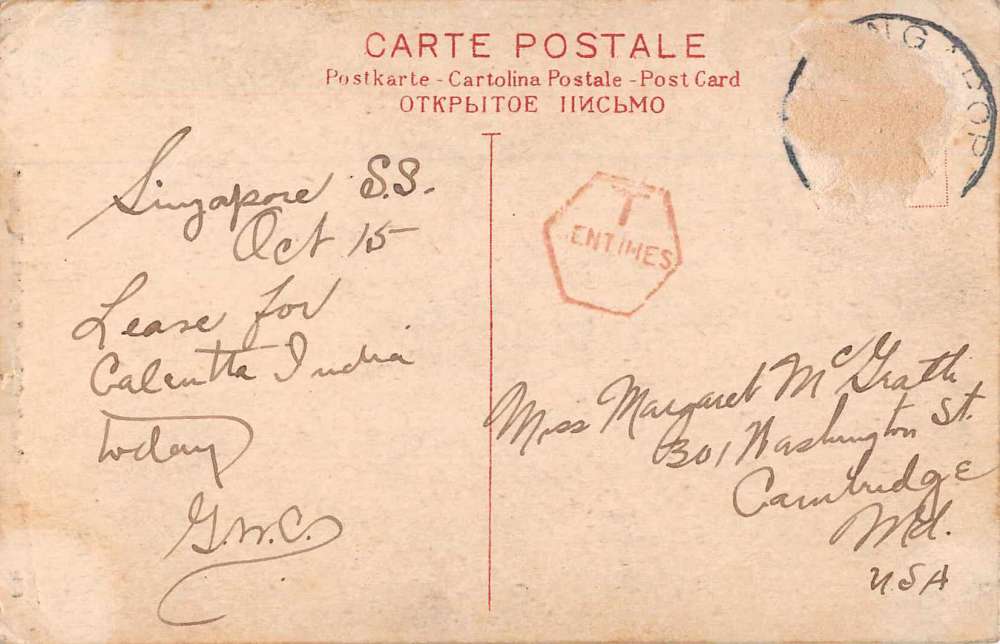 CARTE POSTALE
Postkarte - Cartolina Postale - Post Card
ОТКРЫТОЕ ПИСЬМО
NGAPOR
Singapore S.S.
Oct 15
Lease for
Calcutta India
today
G.W.C.
T
ENTIMES
Miss Margaret McGrath
301 Washington St.
Cambridge
Md.
USA